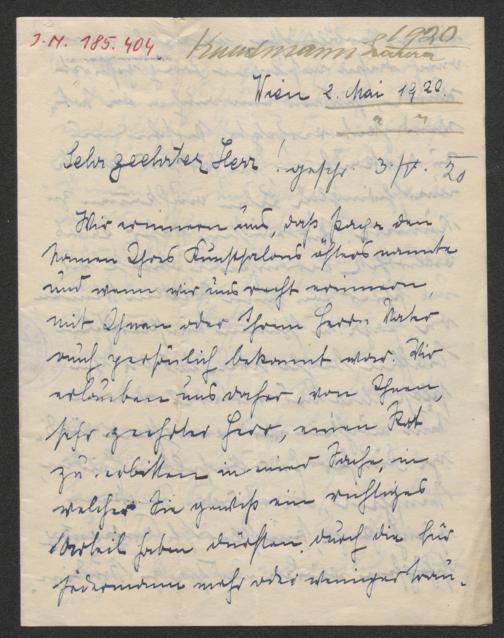 J.N. 185.404
1920
Wien 2. Mai 1920.
Sehr geehrter Herr! geschr. 3./V. 20
Wir erinnern uns, daß Papa den
Namen Ihres Kunstsalons öfters nannte
und wenn wir uns recht erinnern,
mit Ihnen oder Ihrem Herrn Vater
auch persönlich bekannt war. Wir
erlauben uns daher, von Ihnen,
sehr geehrter Herr, einen Rat
zu erbitten in einer Sache, in
welcher Sie gewiß ein richtiges
Urteil haben dürften. Durch die für
jedermann mehr oder weniger trau-